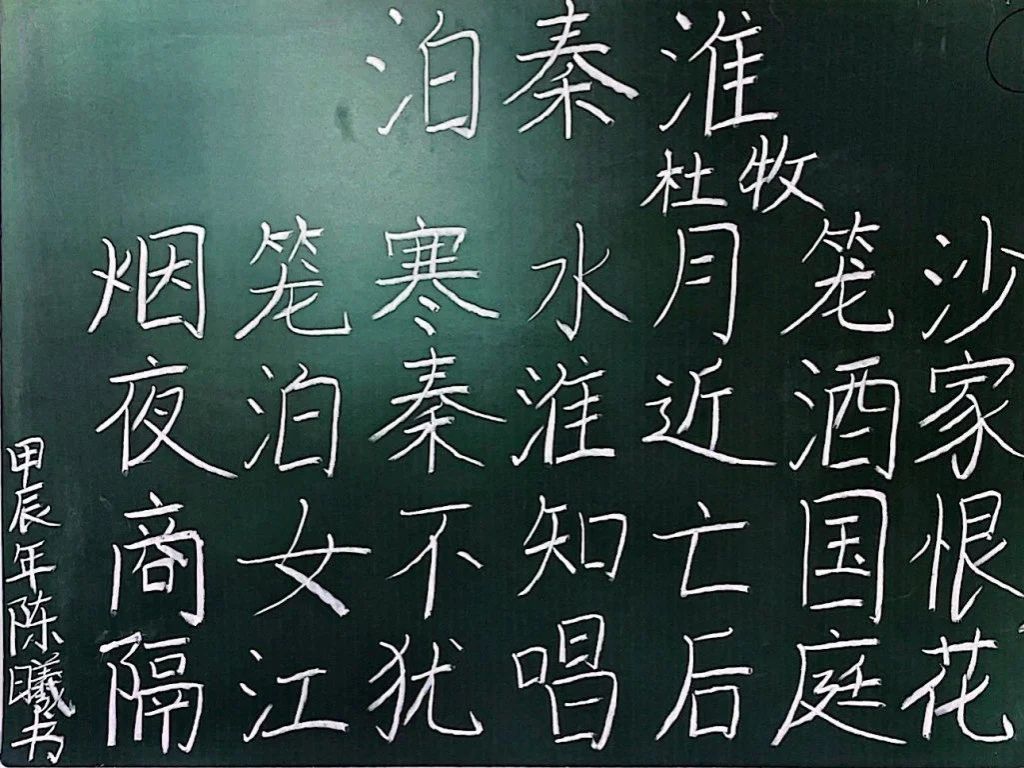 泊秦淮
杜牧
烟笼寒水月笼沙
夜泊秦淮近酒家
商女不知亡国恨
隔江犹唱后庭花
甲辰年陈曦书